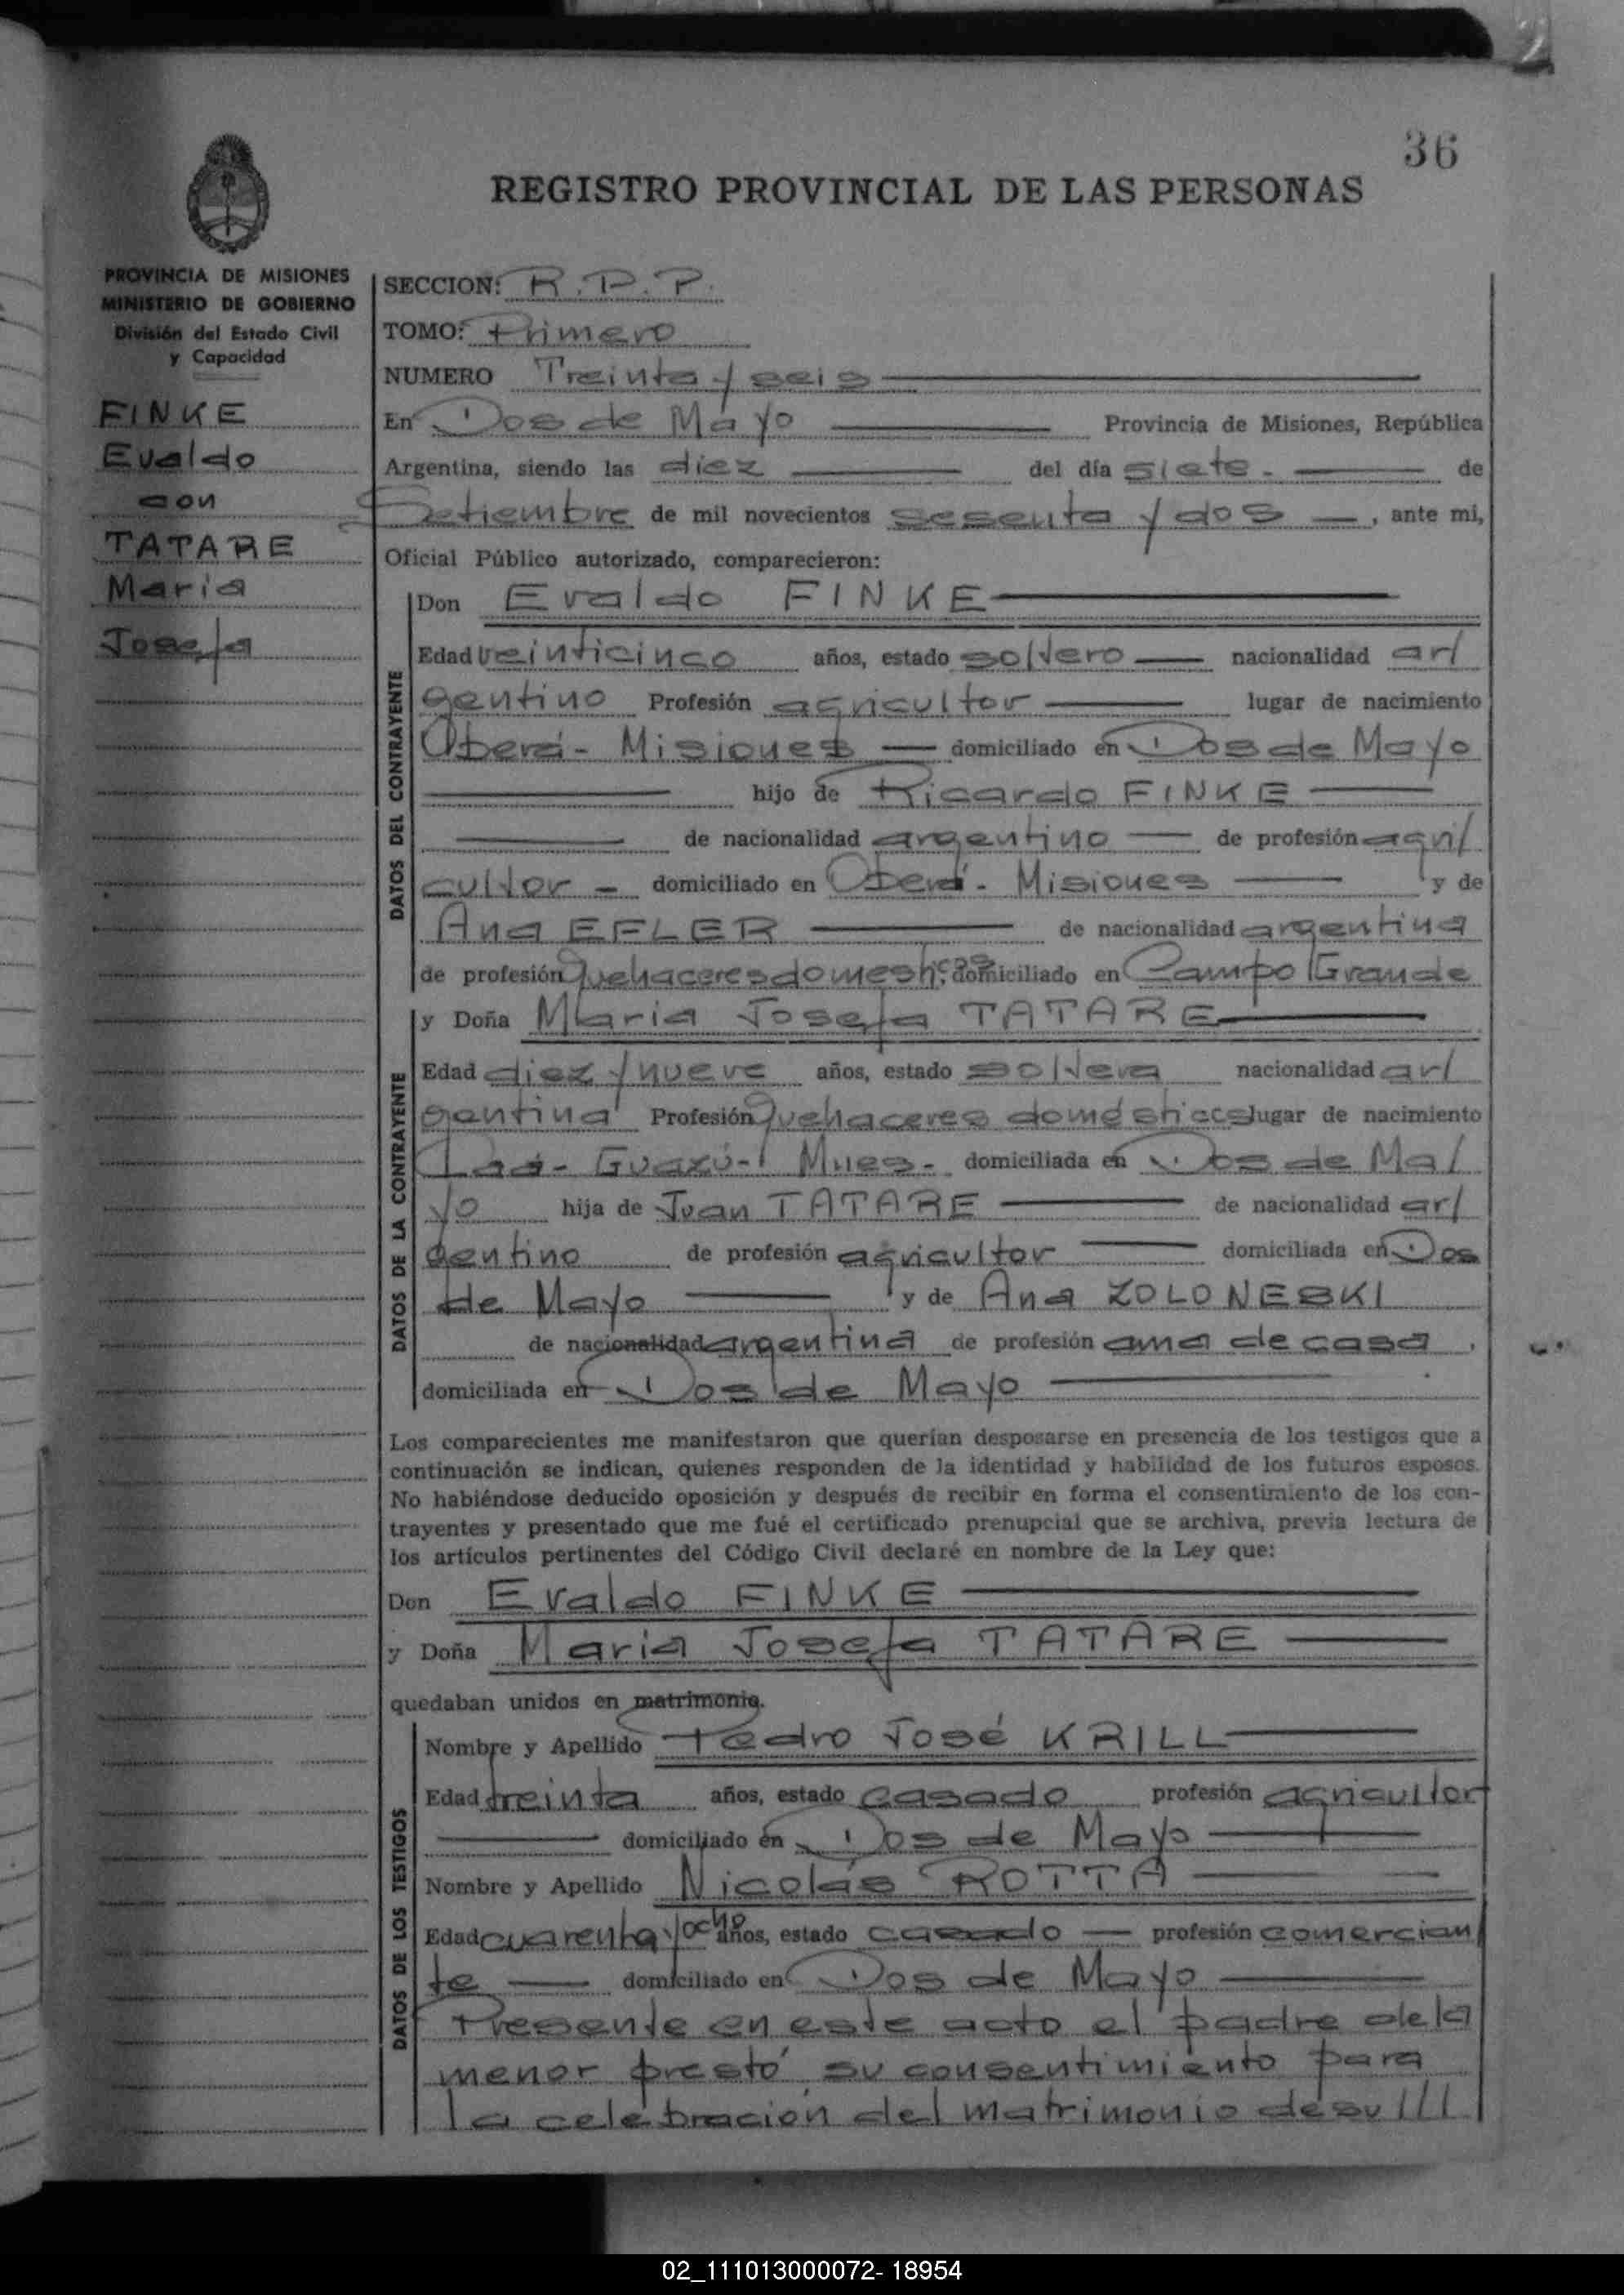 36
REGISTRO PROVINCIAL DE LAS PERSONAS
PROVINCIA DE MISIONES
MINISTERIO DE GOBIERNO
División del Estado Civil
y Capacidad
FINKE
Evaldo
con
TATARE
Maria
Josefa
SECCION: R.P.P.
TOMO: Primero
NUMERO Treinta y seis
En Dos de Mayo Provincia de Misiones, República
Argentina, siendo las diez del día siete - de
Setiembre de mil novecientos sesenta y dos —, ante mi,
Oficial Público autorizado, comparecieron:
DATOS DEL CONTRAYENTE
Don Evaldo FINKE
Edad veinticinco años, estado soltero nacionalidad ar/
gentino Profesión agricultor lugar de nacimiento
Oberá - Misiones — domiciliado en Dos de Mayo
hijo de Ricardo FINKE
de nacionalidad argentino — de profesión agri/
cultor - domiciliado en Oberá - Misiones y de
Ana EFLER de nacionalidad argentina
de profesión Quehaceres domesticos domiciliado en Campo Grande
DATOS DE LA CONTRAYENTE
y Doña Maria Josefa TATARE
Edad diez y nueve años, estado soltera nacionalidad ar/
gentina Profesión Quehaceres domésticos lugar de nacimiento
Guazú - Mnes - domiciliada en Dos de Ma/
yo hija de Juan TATARE de nacionalidad ar/
gentino de profesión agricultor domiciliada en Dos
de Mayo y de Ana ZOLONESKI
de nacionalidad argentina de profesión ama de casa .
domiciliada en Dos de Mayo
Los comparecientes me manifestaron que querían desposarse en presencia de los testigos que a
continuación se indican, quienes responden de la identidad y habilidad de los futuros esposos.
No habiéndose deducido oposición y después de recibir en forma el consentimiento de los con-
trayentes y presentado que me fué el certificado prenupcial que se archiva, previa lectura de
los artículos pertinentes del Código Civil declaré en nombre de la Ley que:
Don Evaldo FINKE
y Doña Maria Josefa TATARE
quedaban unidos en matrimonio.
DATOS DE LOS TESTIGOS
Nombre y Apellido Pedro José KRILL
Edad treinta años, estado casado profesión agricultor
domiciliado en Dos de Mayo
Nombre y Apellido Nicolás ROTTA
Edad cuarenta y ocho años, estado casado — profesión comercian
te — domiciliado en Dos de Mayo
Presente en este acto el padre de la
menor prestó su consentimiento para
la celebración del matrimonio de su ///
02_111013000072-18954